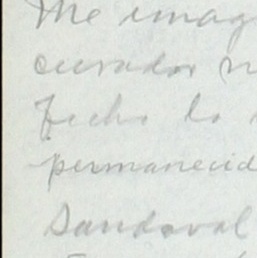 Me imag
curador n
fecho la
permanecid
Sandoval